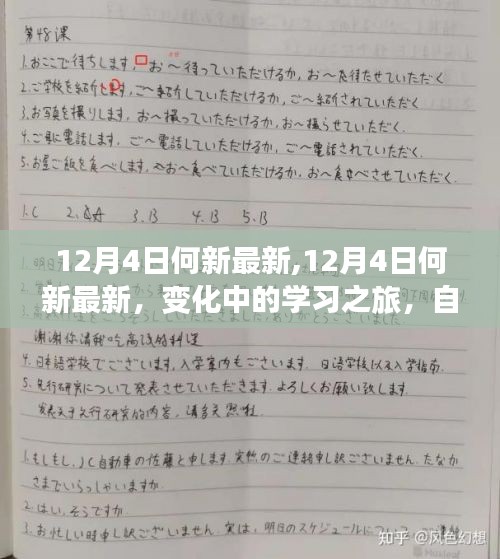 第48课
1.おここで待ちします,お～待っていただけるか,お～を待たせていただく
2.ご学校を紹介します,ご～紹介していただけるか,ご～紹介されていただく
3.お写真を撮りします,お～撮っていただけるか,お～撮らせていただく.
4.ご母に電話します.ご～電話していただけるか,ご～電話されていただく.
5.お昼ご飯を食べします,お～食べていただけるか,お～食べさせていただく.
1.C 2.A 3.B 4.B 5.B
12月4日何新最新,12月4日何
新最新，变化中的学习之旅，自
谢谢你请我吃高级的料理
4.日本語学校でございます,入学案内もございます.日语学校以及入学指南.
5.先行研究について発表させていただきます.よろしくお願い致します.
发表关于先行研究的内容,请多关照啦.
1.もしもし,JC自動車の佐藤と申します.突然のご連絡申し訳ございません.たなか
さまでいらっしゃいますか
2.はい,そうですか
3.お忙しい時申し訳ございません.実は,明日のスケジュールについて
知乎 @风色幻想